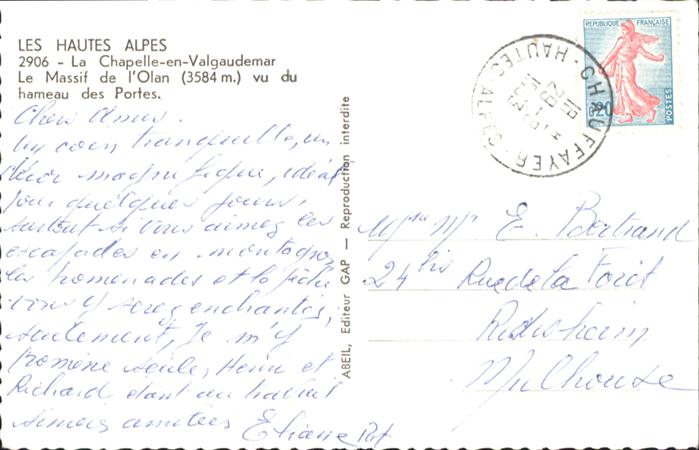 LES HAUTES ALPES
2906 - La Chapelle-en-Valgaudemar
Le Massif de l'Olan (3584 m.) vu du
hameau des Portes.
Chers Amis.
Un coin tranquille, un
décor magnifique, idéal
pour quelques jours,
surtout si vous aimez les
escapades en montagne,
les promenades et la pêche
vous y serez enchantés,
seulement, je m'y
promène seule, Henri et
Richard étant au travail
amitiés
Eliane
ABEIL, Editeur GAP — Reproduction interdite
REPUBLIQUE FRANÇAISE
0,20
POSTES
CHAUFFAYER
HAUTES ALPES
E. Bertrand
24 bis Rue de la Forêt
Riedisheim
Mulhouse